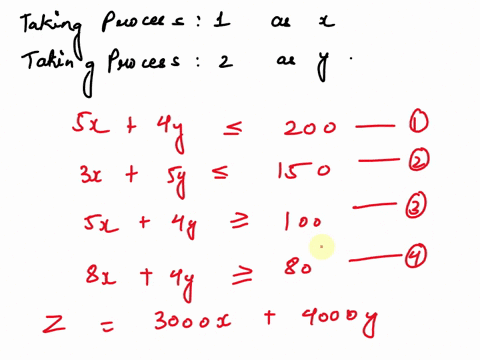 Taking Process : 1 as x
Taking Process : 2 as y .
5x + 4y ≤ 200 — ①
3x + 5y ≤ 150 — ②
5x + 4y ≥ 100 — ③
8x + 4y ≥ 80 — ④
Z = 3000x + 4000y